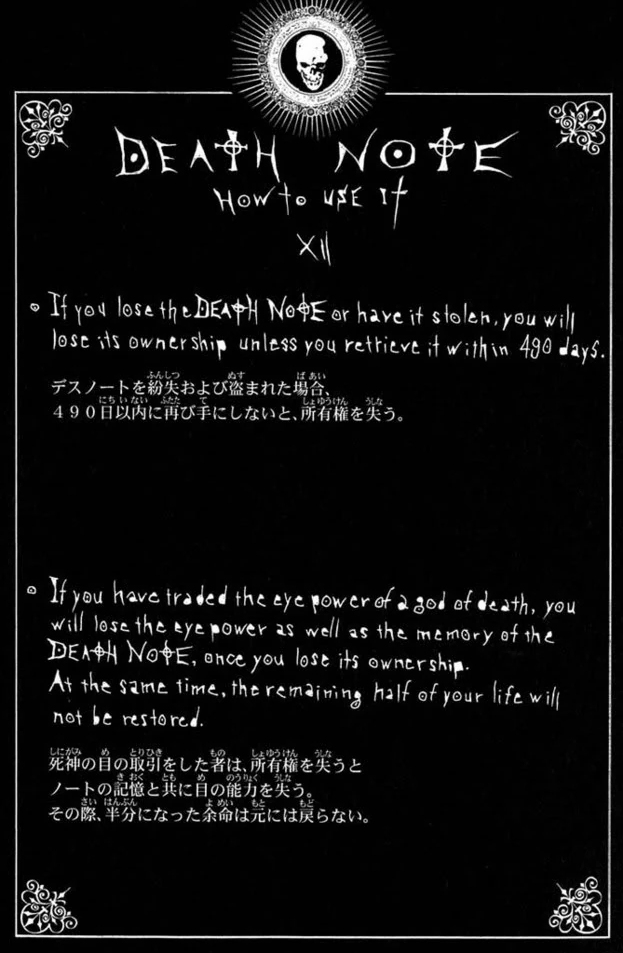 DEATH NOTE
How to use it
XII
If you lose the DEATH NOTE or have it stolen, you will
lose its ownership unless you retrieve it within 490 days.
デスノートを紛失および盗まれた場合、
490日以内に再び手にしないと、所有権を失う。
If you have traded the eye power of a god of death, you
will lose the eye power as well as the memory of the
DEATH NOTE, once you lose its ownership.
At the same time, the remaining half of your life will
not be restored.
死神の目の取引をした者は、所有権を失うと
ノートの記憶と共に目の能力を失う。
その際、半分になった余命は元には戻らない。